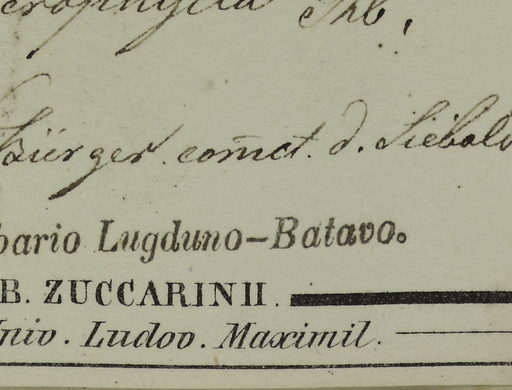 crophylla Thb.
Bürger com̄ct. d. Siebold
bario Lugduno-Batavo.
B. ZUCCARINII.
Univ. Ludov. Maximil.